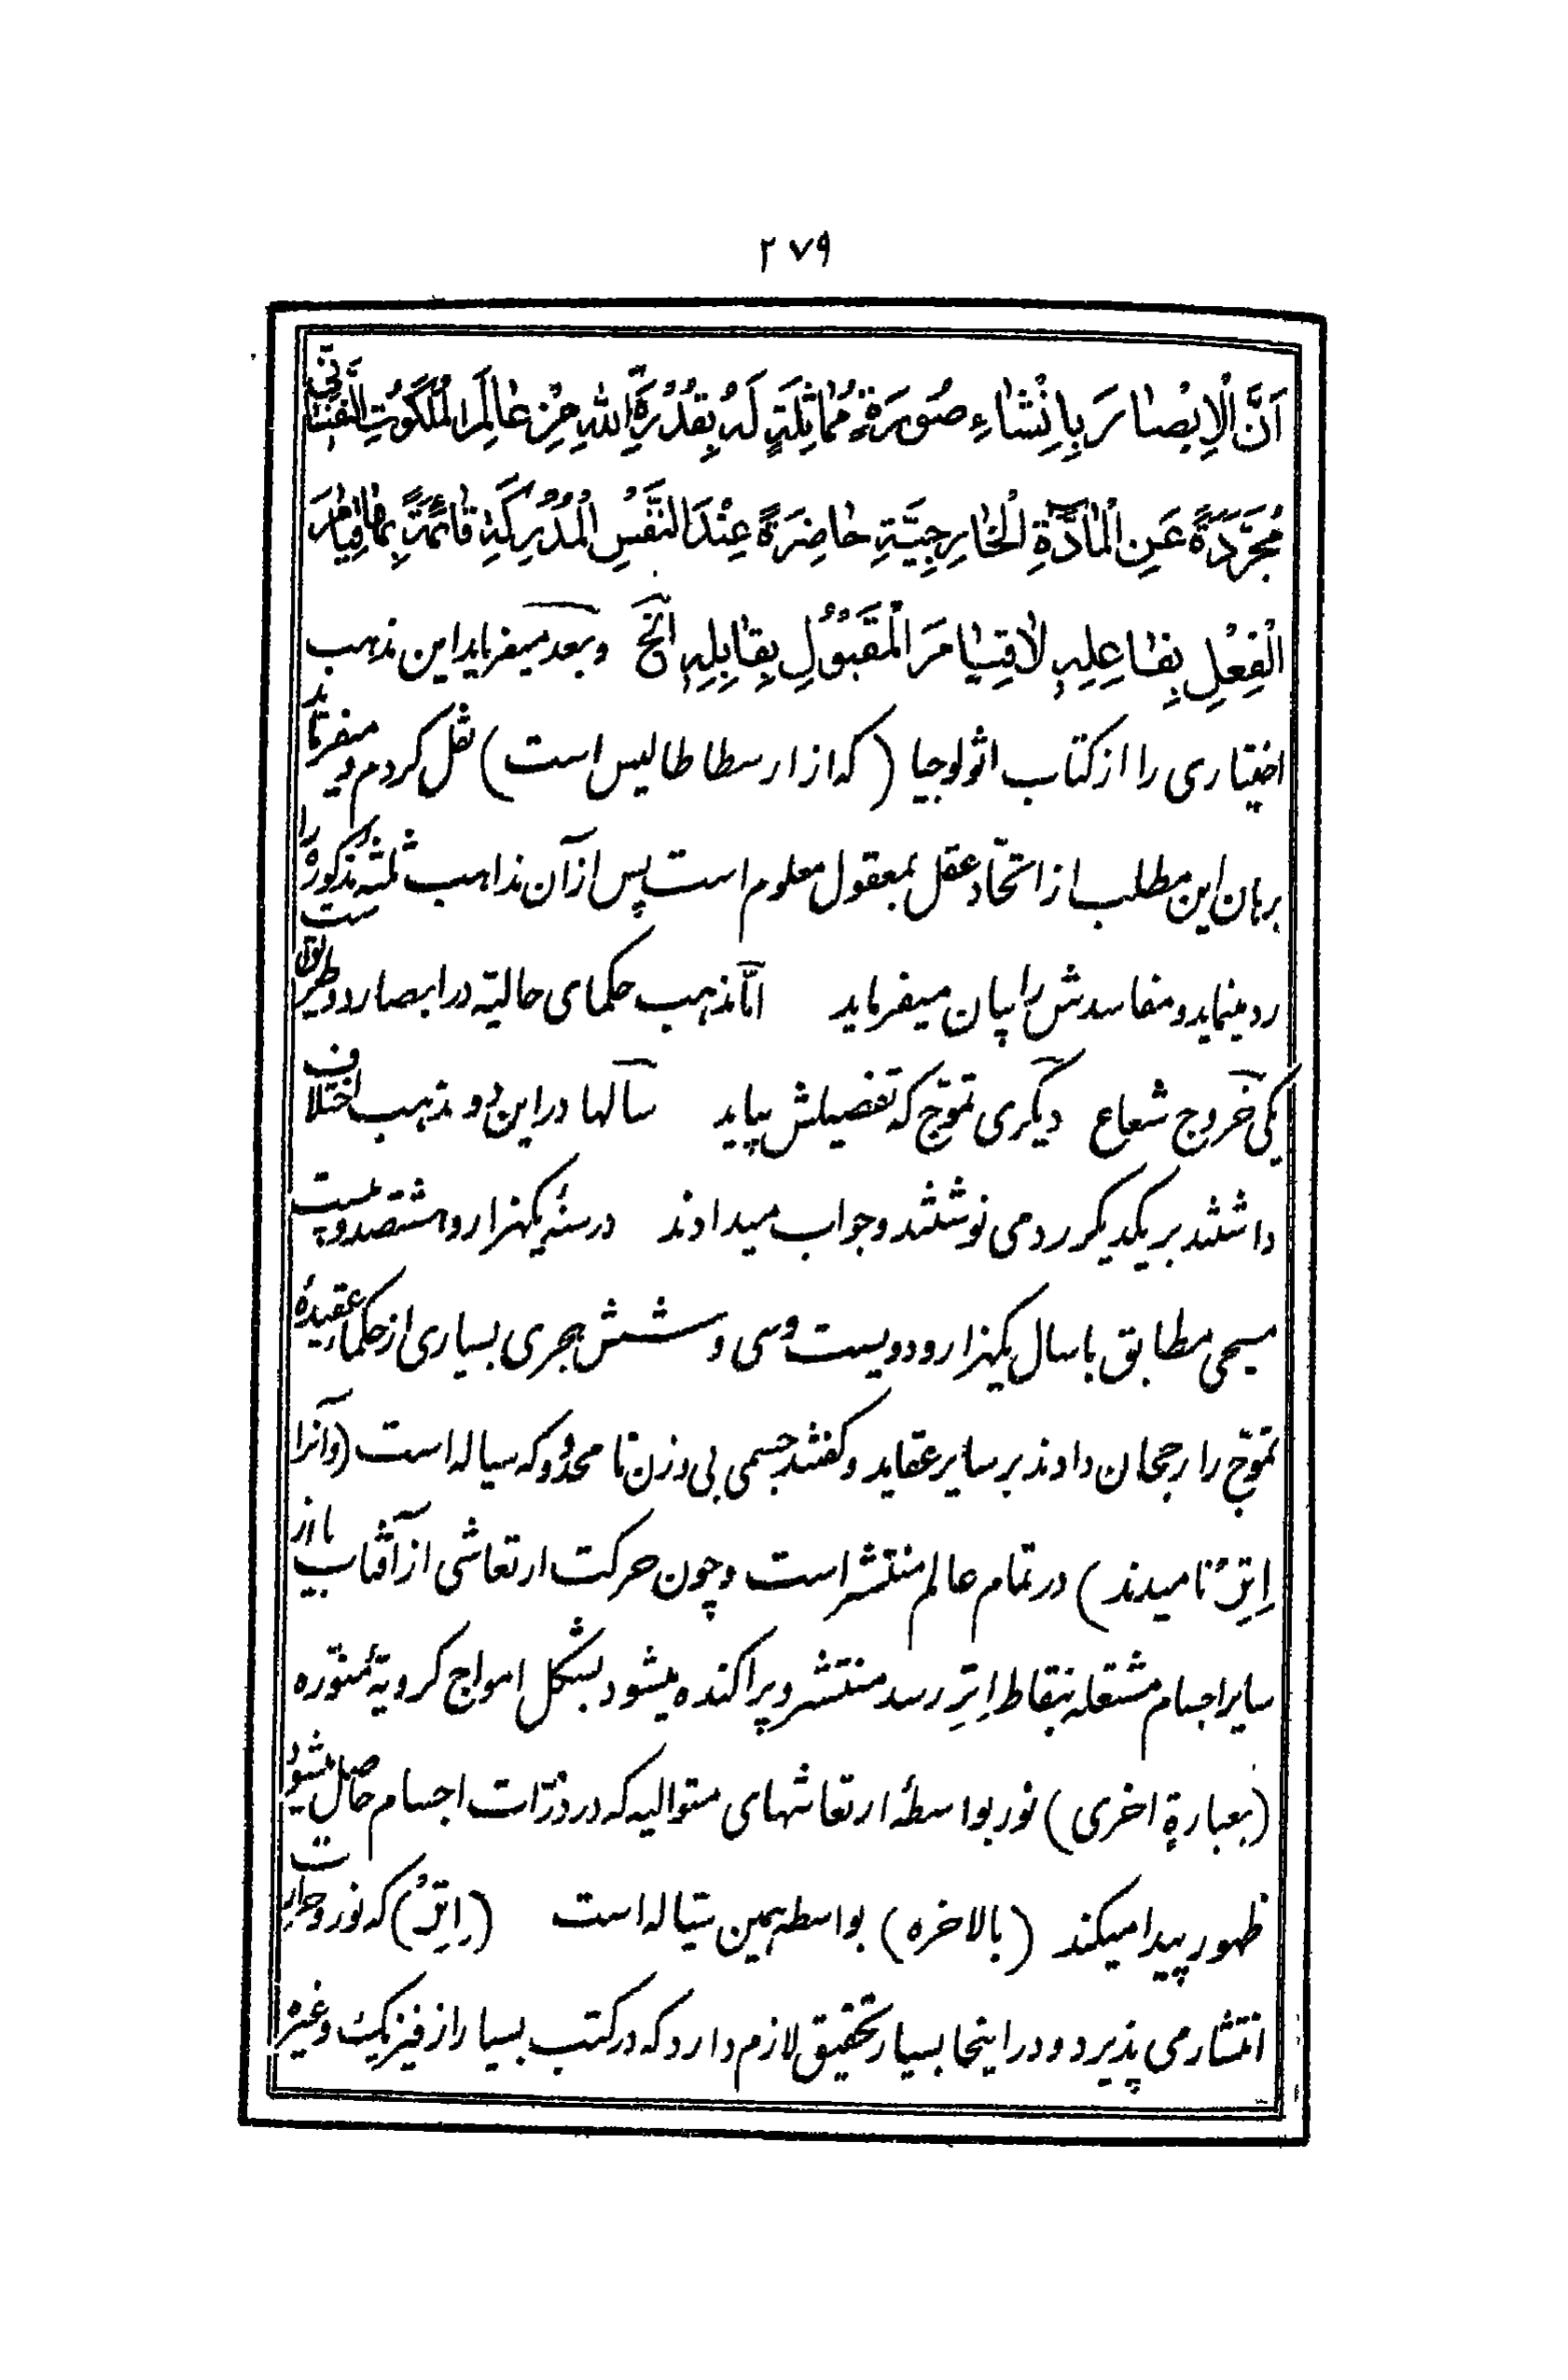 ۲۷۹
اَنَّ الْاِبْصٰارَ بِاِنْشٰاءِ صُورَةٍ مُمٰاثِلَةٍ لَهُ بِقُدْرَةِ اللهِ مِنْ عٰالَمِ الْمَلَكُوتِ النَّفْسٰانِیّ
مُجَرَّدَةً عَنِ الْمٰادَّةِ الْخٰارِجِیَّةِ حٰاضِرَةً عِنْدَ النَّفْسِ الْمُدْرِكَةِ قٰائِمَةً بِهٰا قِیٰامَ
الْفِعْلِ بِفٰاعِلِهِ لٰا قِیٰامَ الْمَقْبُوْلِ بِقٰابِلِهِ الَخ وبعد میفرماید این مذهب
اختیاری را از کتاب اثولوجیا (که از ارسطاطالیس است) نقل کردم و میفرماید
برهان این مطلب از اتّحاد عقل بمعقول معلوم است پس از آن مذاهب ثلثهٔ مذکوره را
رد مینماید و مفاسدش را بیان میفرماید امّا مذهب حکمای حالیّه در ابصار دو طریق است
یکی خروج شعاع دیگری تموّج که تفصیلش بیاید سالها در این دو مذهب اختلاف
داشتند بر یکدیگر رد می نوشتند و جواب میدادند در سنهٔ یکهزار و هشتصد و بیست
مسیحی مطابق با سال یکهزار و دویست و سی و شش هجری بسیاری از حکماء عقیدهٔ
تموّج را رجحان دادند بر سایر عقاید و گفتند جسمی بی وزن نامحدود که سیاله است (و آنرا
اِتِرْ نامیدند) در تمام عالم منتشر است و چون حرکت ارتعاشی از آفتاب یا از
سایر اجسام مشتعله بنقاط اِتِرِ رسد منتشر و پراکنده میشود بشکل امواج کرویهٔ منوّره
(بعبارة اخری) نور بواسطهٔ ارتعاشهای متوالیه که در ذرّات اجسام حاصل میشود
ظهور پیدا میکند (بالاخره) بواسطه همین سیّاله است (اِتِرْ) که نور و حرارت
انتشار می پذیرد و در اینجا بسیار تحقیق لازم دارد که در کتب بسیار از فیزیک و غیره